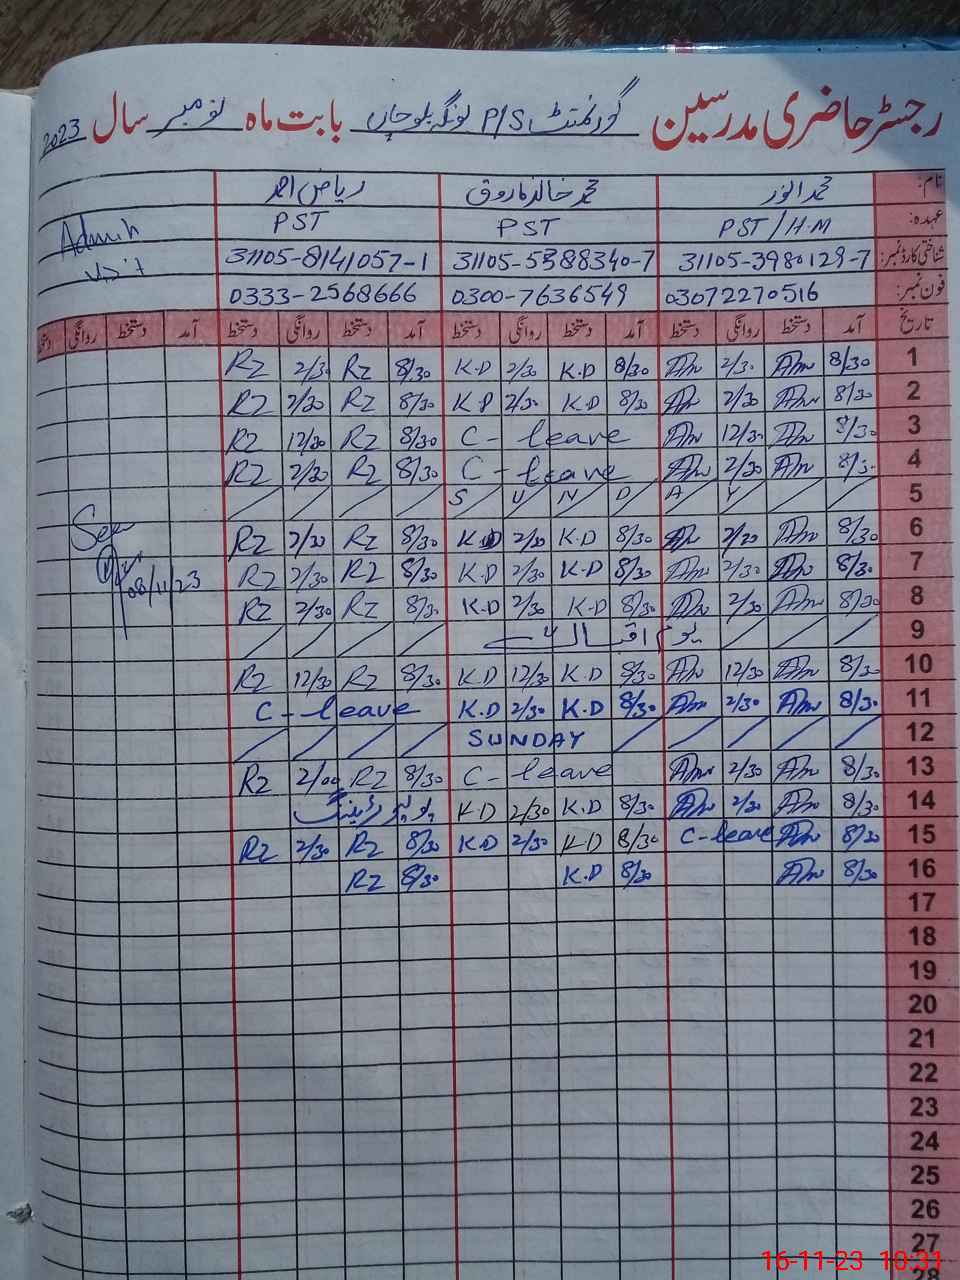 رجسٹر حاضری مدرسین گورنمنٹ P/S ٹونگہ بلوچاں بابت ماہ نومبر سال 2023
نام: محمد انور محمد خالد فاروق ریاض احمد
عہدہ: PST/H.M PST PST Admin
شناختی کارڈ نمبر: 31105-3980129-7 31105-5388340-7 31105-8141057-1 Visit
فون نمبر: 03072270516 0300-7636549 0333-2568666
تاریخ آمد دستخط روانگی دستخط آمد دستخط روانگی دستخط آمد دستخط روانگی دستخط آمد دستخط روانگی
1 8/30 Am 2/30 Am 8/30 K.D 2/30 K.D 8/30 RZ 2/30 RZ
2 8/30 Am 2/30 Am 8/30 K.D 2/30 K.D 8/30 RZ 2/30 RZ
3 8/30 Am 12/30 Am C-leave 8/30 RZ 12/30 RZ
4 8/30 Am 2/30 Am C-leave 8/30 RZ 2/30 RZ
5 S U N D A Y
6 8/30 Am 2/30 Am 8/30 K.D 2/30 K.D 8/30 RZ 2/30 RZ See
7 8/30 Am 2/30 Am 8/30 K.D 2/30 K.D 8/30 RZ 2/30 RZ 08/11/23
8 8/30 Am 2/30 Am 8/30 K.D 2/30 K.D 8/30 RZ 2/30 RZ
9 یوم اقبال
10 8/30 Am 12/30 Am 8/30 K.D 12/30 K.D 8/30 RZ 12/30 RZ
11 8/30 Am 2/30 Am 8/30 K.D 2/30 K.D C-leave
12 SUNDAY
13 8/30 Am 2/30 Am C-leave 8/30 RZ 2/00 RZ
14 8/30 Am 2/30 Am 8/30 K.D 2/30 K.D پولیو ٹریننگ
15 8/30 Am C-leave 8/30 K.D 2/30 K.D 8/30 RZ 2/30 RZ
16 8/30 Am 8/30 K.D 8/30 RZ
17
18
19
20
21
22
23
24
25
26
27
28
16-11-23 10:31